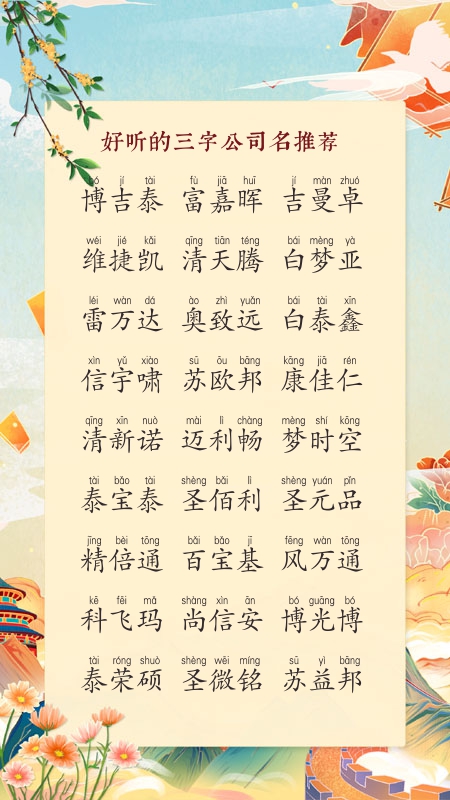 好听的三字公司名推荐
bó jí tài fù jiā huī jí màn zhuó
博吉泰 富嘉晖 吉曼卓
wéi jié kǎi qīng tiān téng bái mèng yà
维捷凯 清天腾 白梦亚
léi wàn dá ào zhì yuǎn bái tài xīn
雷万达 奥致远 白泰鑫
xìn yǔ xiào sū ōu bāng kāng jiā rén
信宇啸 苏欧邦 康佳仁
qīng xīn nuò mài lì chàng mèng shí kōng
清新诺 迈利畅 梦时空
tài bǎo tài shèng bǎi lì shèng yuán pǐn
泰宝泰 圣佰利 圣元品
jīng bèi tōng bǎi bǎo jī fēng wàn tōng
精倍通 百宝基 风万通
kē fēi mǎ shàng xìn ān bó guāng bó
科飞玛 尚信安 博光博
tài róng shuò shèng wēi míng sū yì bāng
泰荣硕 圣微铭 苏益邦